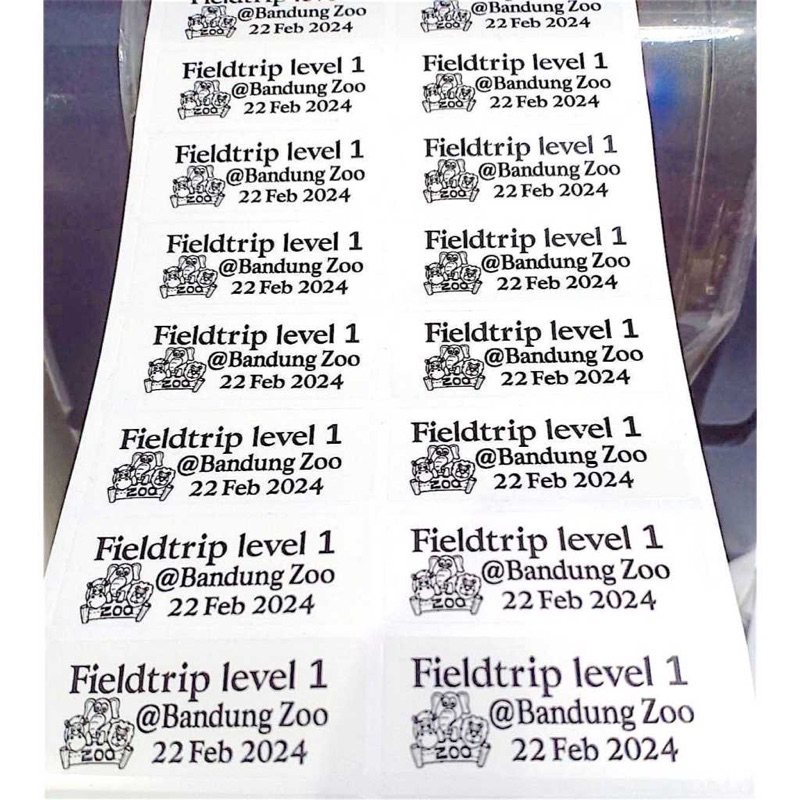 @Bandung Zoo
ZOO
22 Feb 2024
@Bandung Zoo
ZOO
22 Feb 2024
Fieldtrip level 1
@Bandung Zoo
ZOO
22 Feb 2024
Fieldtrip level 1
@Bandung Zoo
ZOO
22 Feb 2024
Fieldtrip level 1
@Bandung Zoo
ZOO
22 Feb 2024
Fieldtrip level 1
@Bandung Zoo
ZOO
22 Feb 2024
Fieldtrip level 1
@Bandung Zoo
ZOO
22 Feb 2024
Fieldtrip level 1
@Bandung Zoo
ZOO
22 Feb 2024
Fieldtrip level 1
@Bandung Zoo
ZOO
22 Feb 2024
Fieldtrip level 1
@Bandung Zoo
ZOO
22 Feb 2024
Fieldtrip level 1
@Bandung Zoo
ZOO
22 Feb 2024
Fieldtrip level 1
@Bandung Zoo
ZOO
22 Feb 2024
Fieldtrip level 1
@Bandung Zoo
ZOO
22 Feb 2024
Fieldtrip level 1
@Bandung Zoo
ZOO
22 Feb 2024
Fieldtrip level 1
@Bandung Zoo
ZOO
22 Feb 2024
Fieldtrip level 1
@Bandung Zoo
ZOO
22 Feb 2024